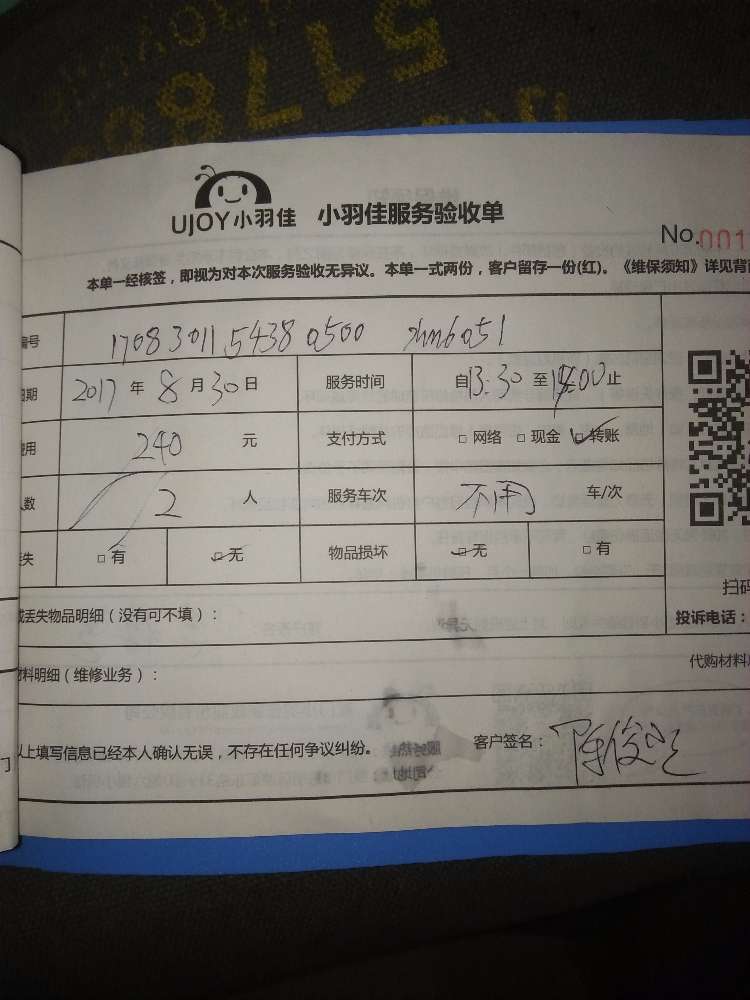 5178
UJOY小羽佳 小羽佳服务验收单
No.001
本单一经核签，即视为对本次服务验收无异议。本单一式两份，客户留存一份(红)。《维保须知》详见背
编号 1708301154380500 xm6051
日期 2017 年 8 月 30 日 服务时间 自 13:30 至 :00 止
费用 240 元 支付方式 □ 网络 □ 现金 ☑ 转账
人数 2 人 服务车次 不用 车/次
丢失 □ 有 ☑ 无 物品损坏 ☑ 无 □ 有
扫码
或丢失物品明细（没有可不填）：
投诉电话：
材料明细（维修业务）：
代购材料
以上填写信息已经本人确认无误，不存在任何争议纠纷。 客户签名： 陈俊